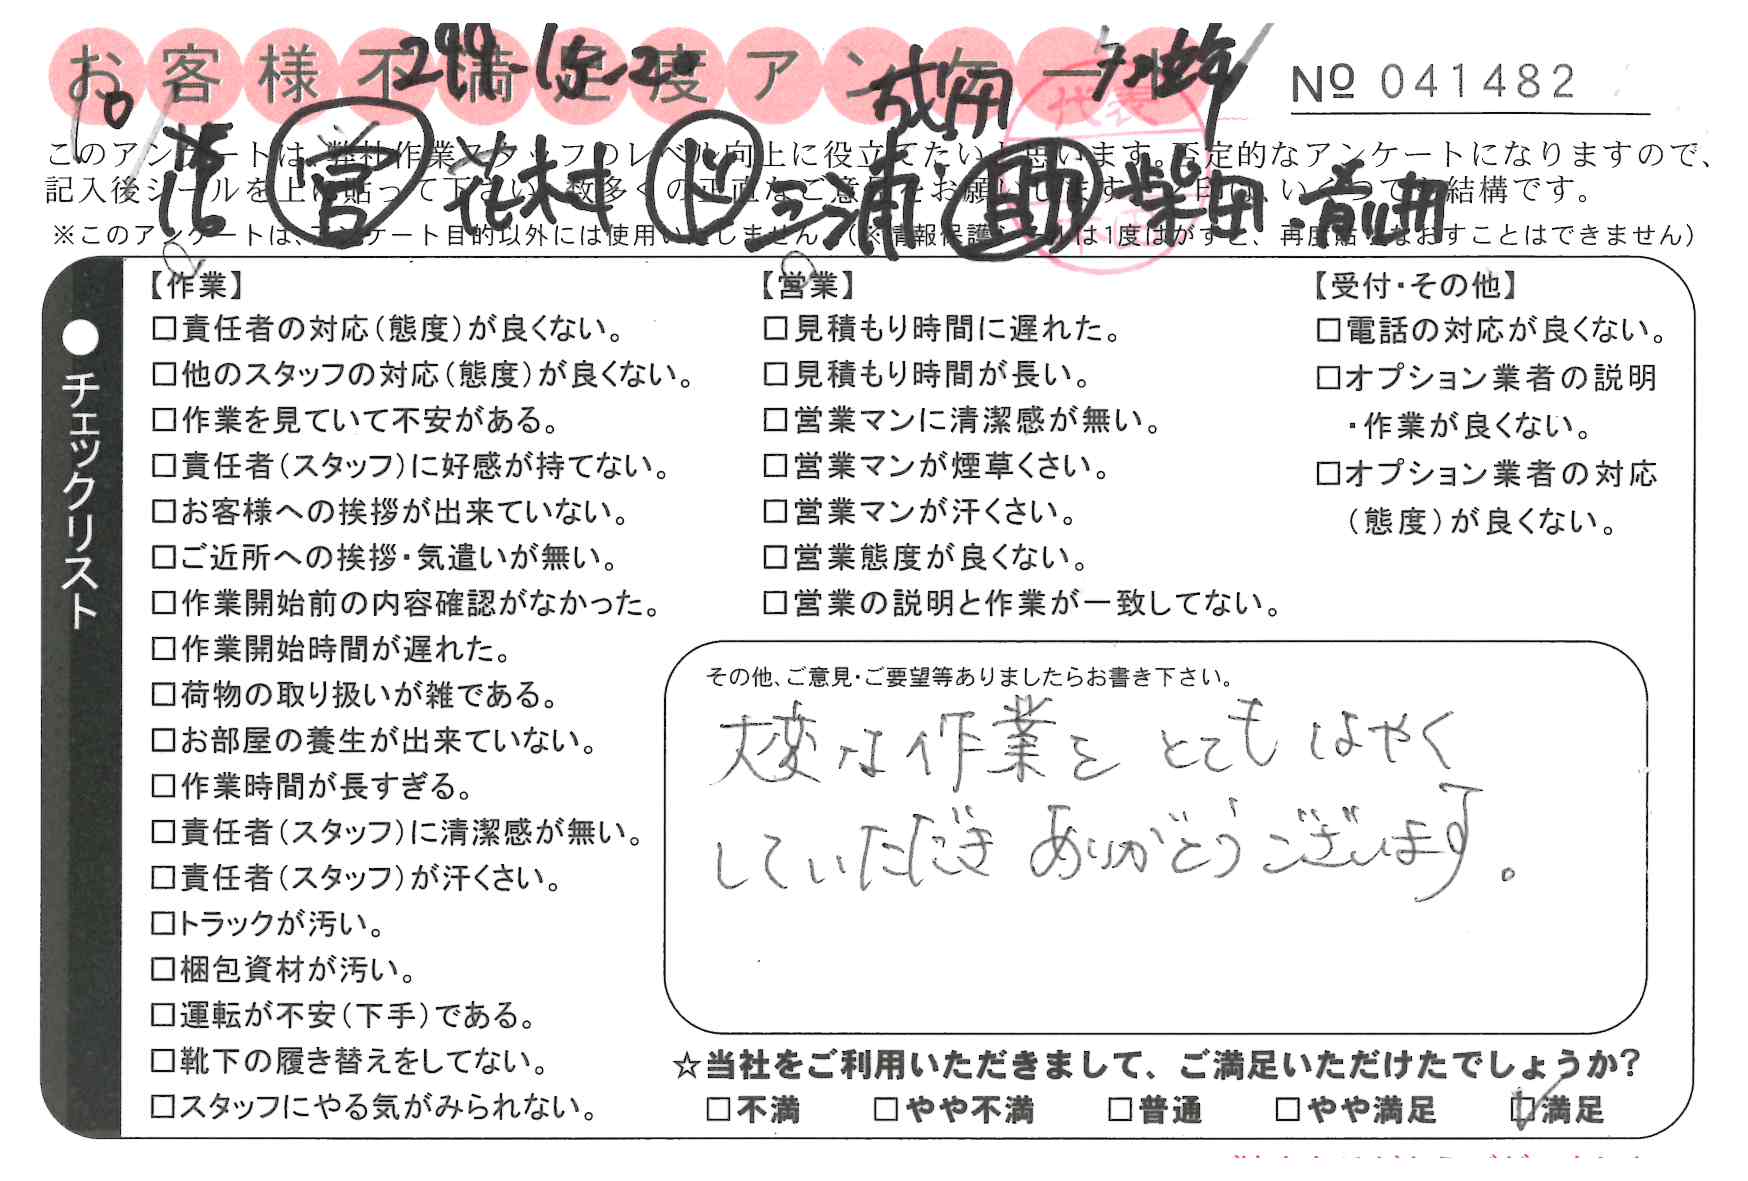 お客様不満足度アンケート
299-15-20
Nº 041482
営 花村 ド 三浦 助 柴田・前畑
このアンケートは、弊社作業スタッフのレベル向上に役立てたいと思います。否定的なアンケートになりますので、
記入後シールを上に貼って下さい。数多くの正直なご意見をお願いします。
結構です。
※このアンケートは、アンケート目的以外には使用いたしません。(※情報保護シールは1度はがすと、再度貼りなおすことはできません)
代表
●チェックリスト
【作業】
□責任者の対応(態度)が良くない。
□他のスタッフの対応(態度)が良くない。
□作業を見ていて不安がある。
□責任者(スタッフ)に好感が持てない。
□お客様への挨拶が出来ていない。
□ご近所への挨拶・気遣いが無い。
□作業開始前の内容確認がなかった。
□作業開始時間が遅れた。
□荷物の取り扱いが雑である。
□お部屋の養生が出来ていない。
□作業時間が長すぎる。
□責任者(スタッフ)に清潔感が無い。
□責任者(スタッフ)が汗くさい。
□トラックが汚い。
□梱包資材が汚い。
□運転が不安(下手)である。
□靴下の履き替えをしてない。
□スタッフにやる気がみられない。
【営業】
□見積もり時間に遅れた。
□見積もり時間が長い。
□営業マンに清潔感が無い。
□営業マンが煙草くさい。
□営業マンが汗くさい。
□営業態度が良くない。
□営業の説明と作業が一致してない。
【受付・その他】
□電話の対応が良くない。
□オプション業者の説明
・作業が良くない。
□オプション業者の対応
(態度)が良くない。
その他、ご意見・ご要望等ありましたらお書き下さい。
大変な作業を とても はやく
していただき ありがとうございます。
☆当社をご利用いただきまして、ご満足いただけたでしょうか?
□不満 □やや不満 □普通 □やや満足 ☑満足